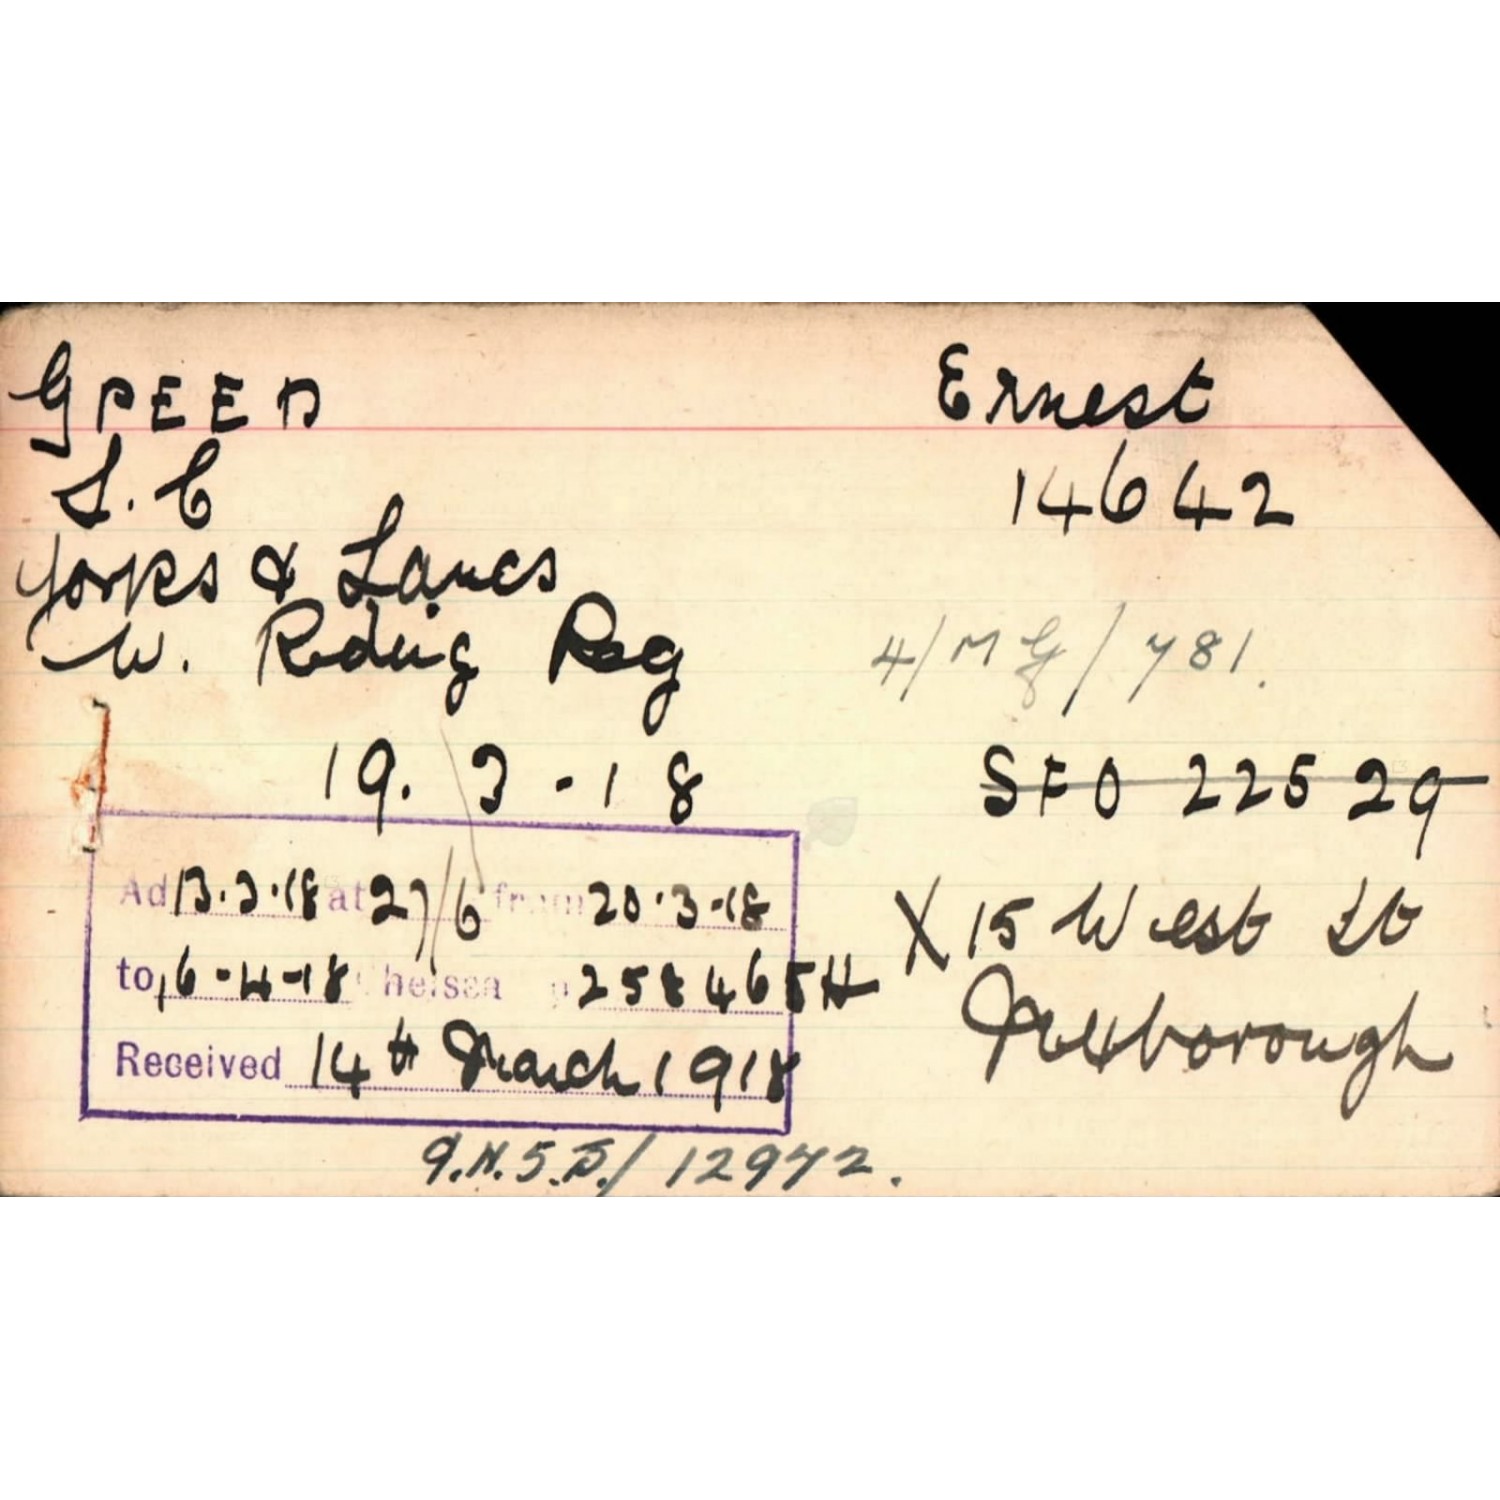 GREEN Ernest
L.C 14642
Yorks & Lancs
W. Riding Reg 4/MG/781.
19. 3 - 18 SFO 22529
Ad 13.3.18 at 27/6 from 20.3.18 X 15 West St
to 16-4-18 Chelsea 258465H Mexborough
Received 14th March 1918
/12972.